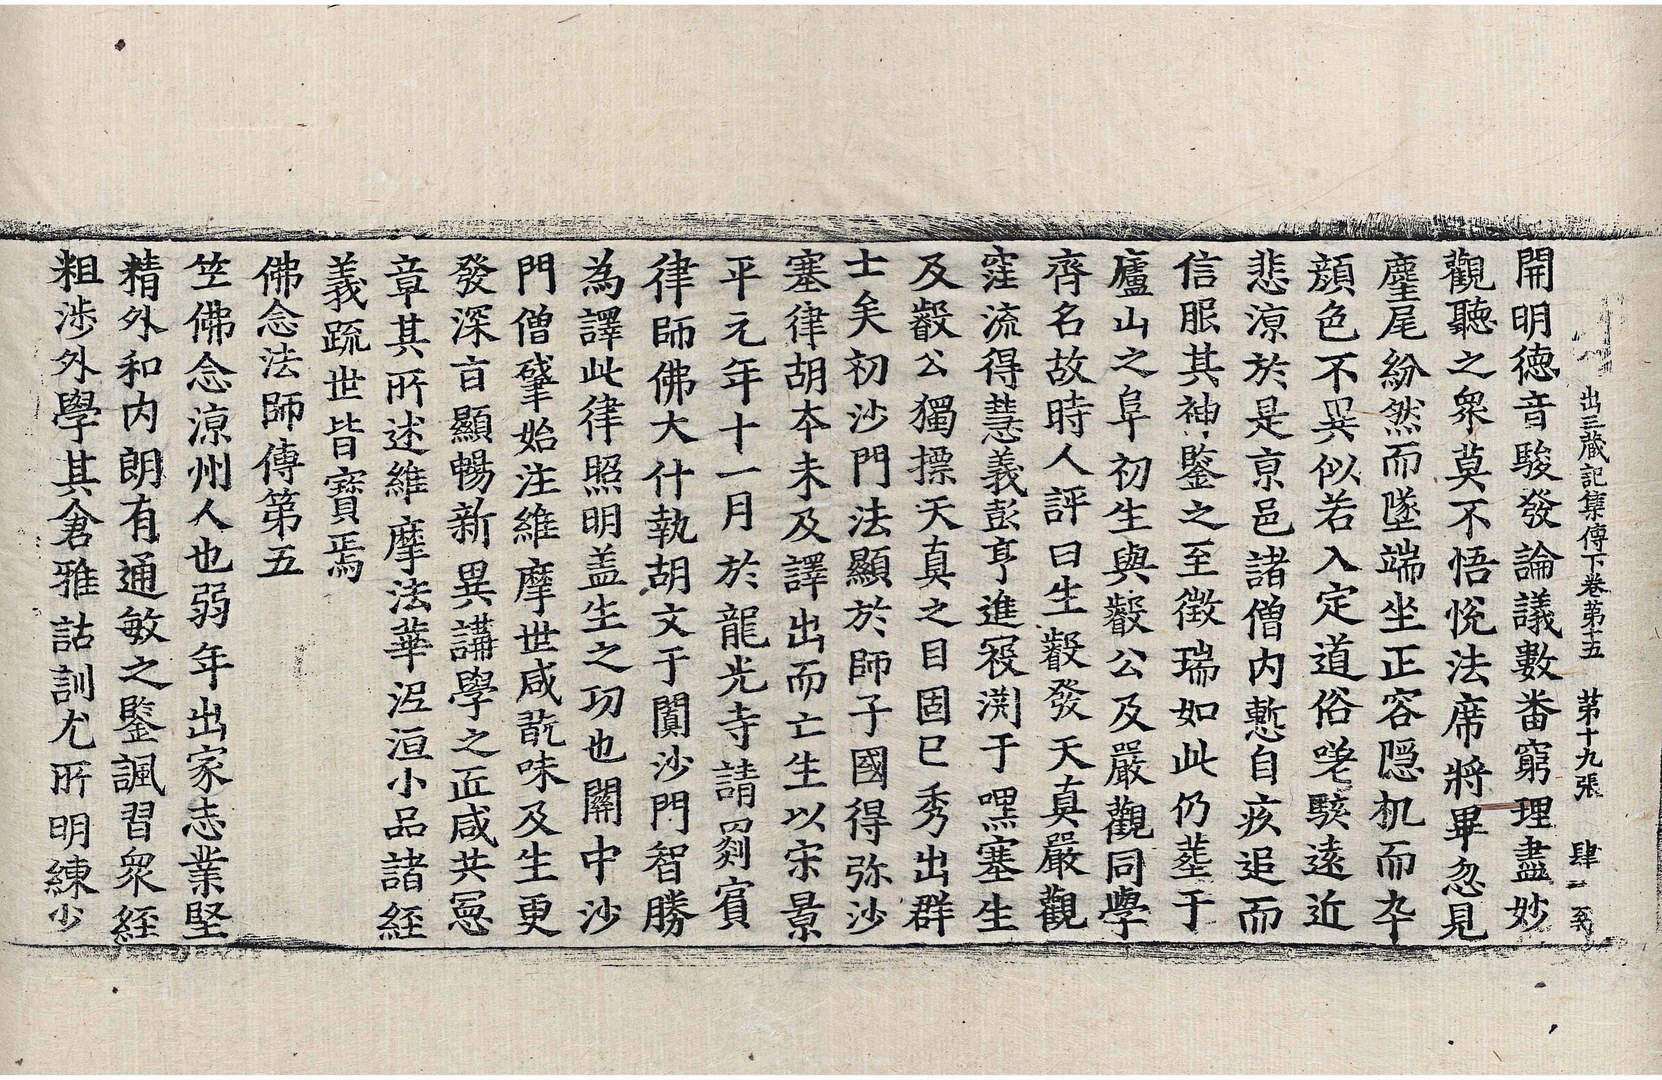 出三藏記集傳下卷第十五 第十九張 肆
開明德音駿發論議數番窮理盡妙
觀聽之衆莫不悟悅法席將畢忽見
麈尾紛然而墜端坐正容隱机而卒
顔色不異似若入定道俗嗟駭遠近
悲涼於是京邑諸僧內慙自疚追而
信服其神鑒之至徵瑞如此仍葬于
廬山之阜初生與叡公及嚴觀同學
齊名故時人評曰生叡發天真嚴觀
窪流得慧義彭亨進寇渕于嘿塞生
及叡公獨摽天真之目固已秀出群
士矣初沙門法顯於師子國得弥沙
塞律胡本未及譯出而亡生以宋景
平元年十一月於龍光寺請罽賓
律師佛大什執胡文于闐沙門智勝
為譯此律照明盖生之功也關中沙
門僧肇始注維摩世咸翫味及生更
發深旨顯暢新異講學之匠咸共憲
章其所述維摩法華泥洹小品諸經
義疏世皆寶焉
佛念法師傳第五
竺佛念涼州人也弱年出家志業堅
精外和內朗有通敏之鑒諷習衆經
粗涉外學其倉雅詁訓尤所明練少